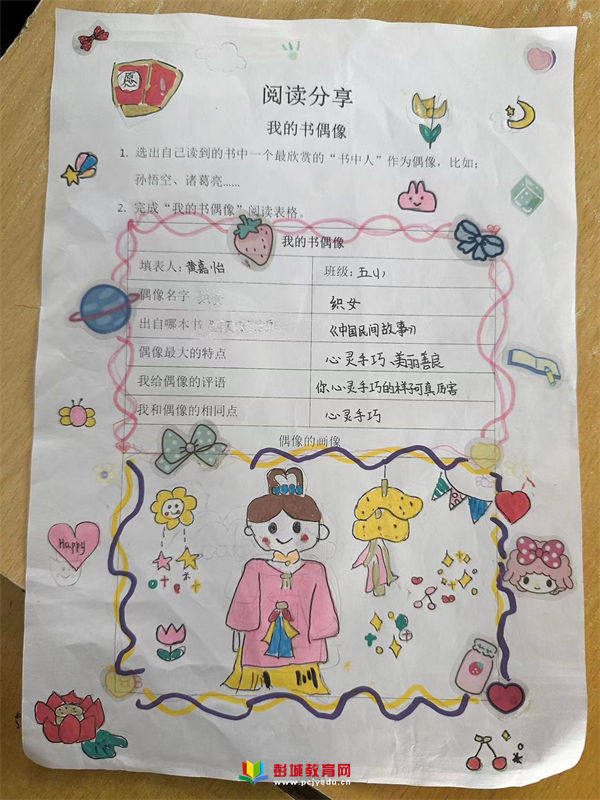 愿
阅读分享
我的书偶像
1. 选出自己读到的书中一个最欣赏的“书中人”作为偶像，比如：
孙悟空、诸葛亮……
2. 完成“我的书偶像”阅读表格。
我的书偶像
填表人：黄嘉怡 班级：五(1)
偶像名字 织女
出自哪本书 《中国民间故事》
偶像最大的特点 心灵手巧、美丽善良
我给偶像的评语 你心灵手巧的样子可真厉害
我和偶像的相同点 心灵手巧
偶像的画像
Happy
彭城教育网
www.pcjyedu.cn